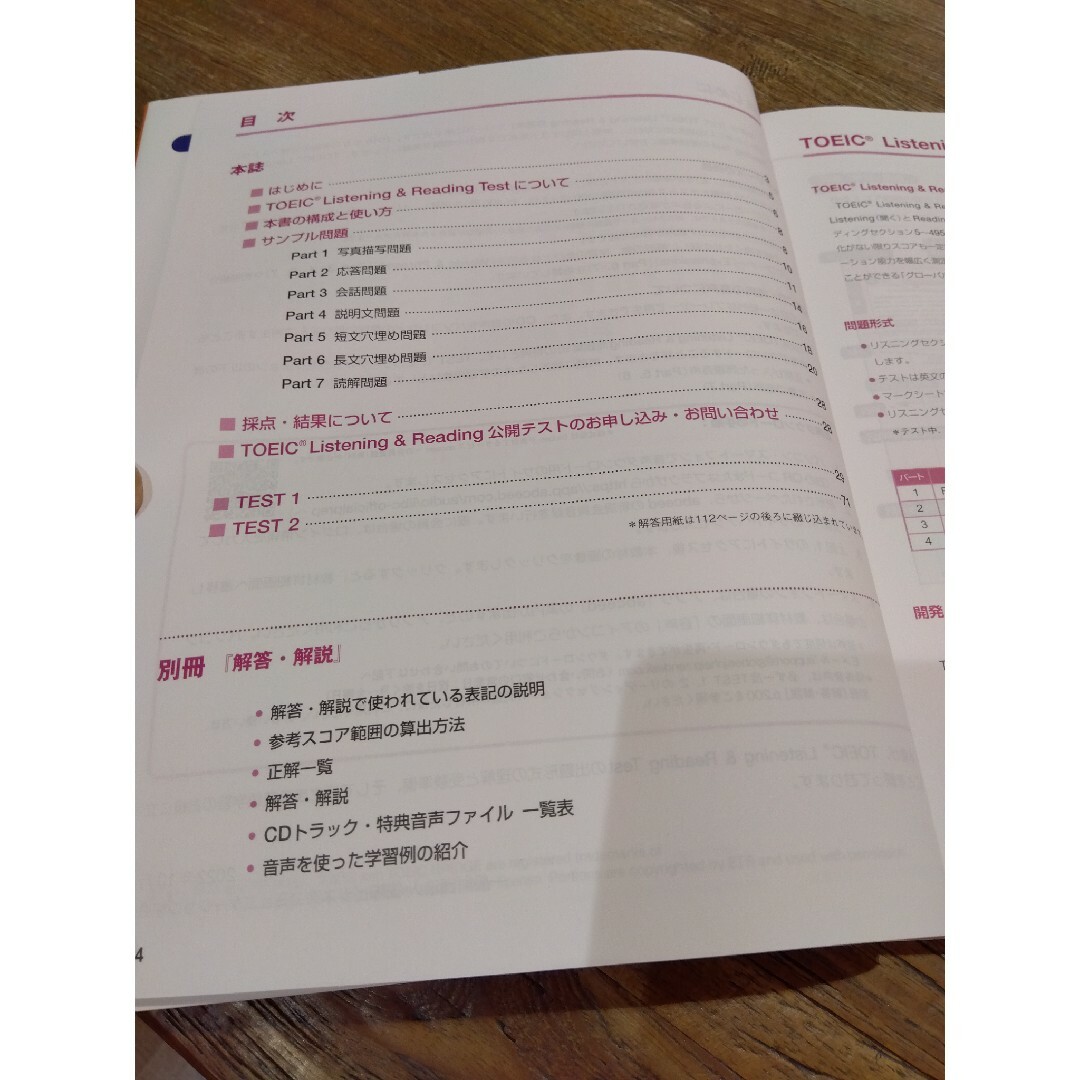 目 次
本誌
■ はじめに 3
■ TOEIC® Listening & Reading Test について 5
■ 本書の構成と使い方 6
■ サンプル問題 8
Part 1 写真描写問題 8
Part 2 応答問題 10
Part 3 会話問題 11
Part 4 説明文問題 14
Part 5 短文穴埋め問題 16
Part 6 長文穴埋め問題 18
Part 7 読解問題 20
■ 採点・結果について 28
■ TOEIC® Listening & Reading 公開テストのお申し込み・お問い合わせ 28
■ TEST 1 29
■ TEST 2 71
*解答用紙は112ページの後ろに綴じ込まれています
別冊 『解答・解説』
• 解答・解説で使われている表記の説明
• 参考スコア範囲の算出方法
• 正解一覧
• 解答・解説
• CDトラック・特典音声ファイル 一覧表
• 音声を使った学習例の紹介
4
TOEIC® Listeni
TOEIC® Listening & Re
TOEIC® Listening & R
Listening(聞く)と Readin
ディングセクション5~495
化がない限りスコアも一定
ーション能力を幅広く測定
ことができる「グローバ
問題形式
• リスニングセクシ
します。
• テストは英文の
• マークシート
• リスニングセ
*テスト中、
パート
1
2
3
4
開発